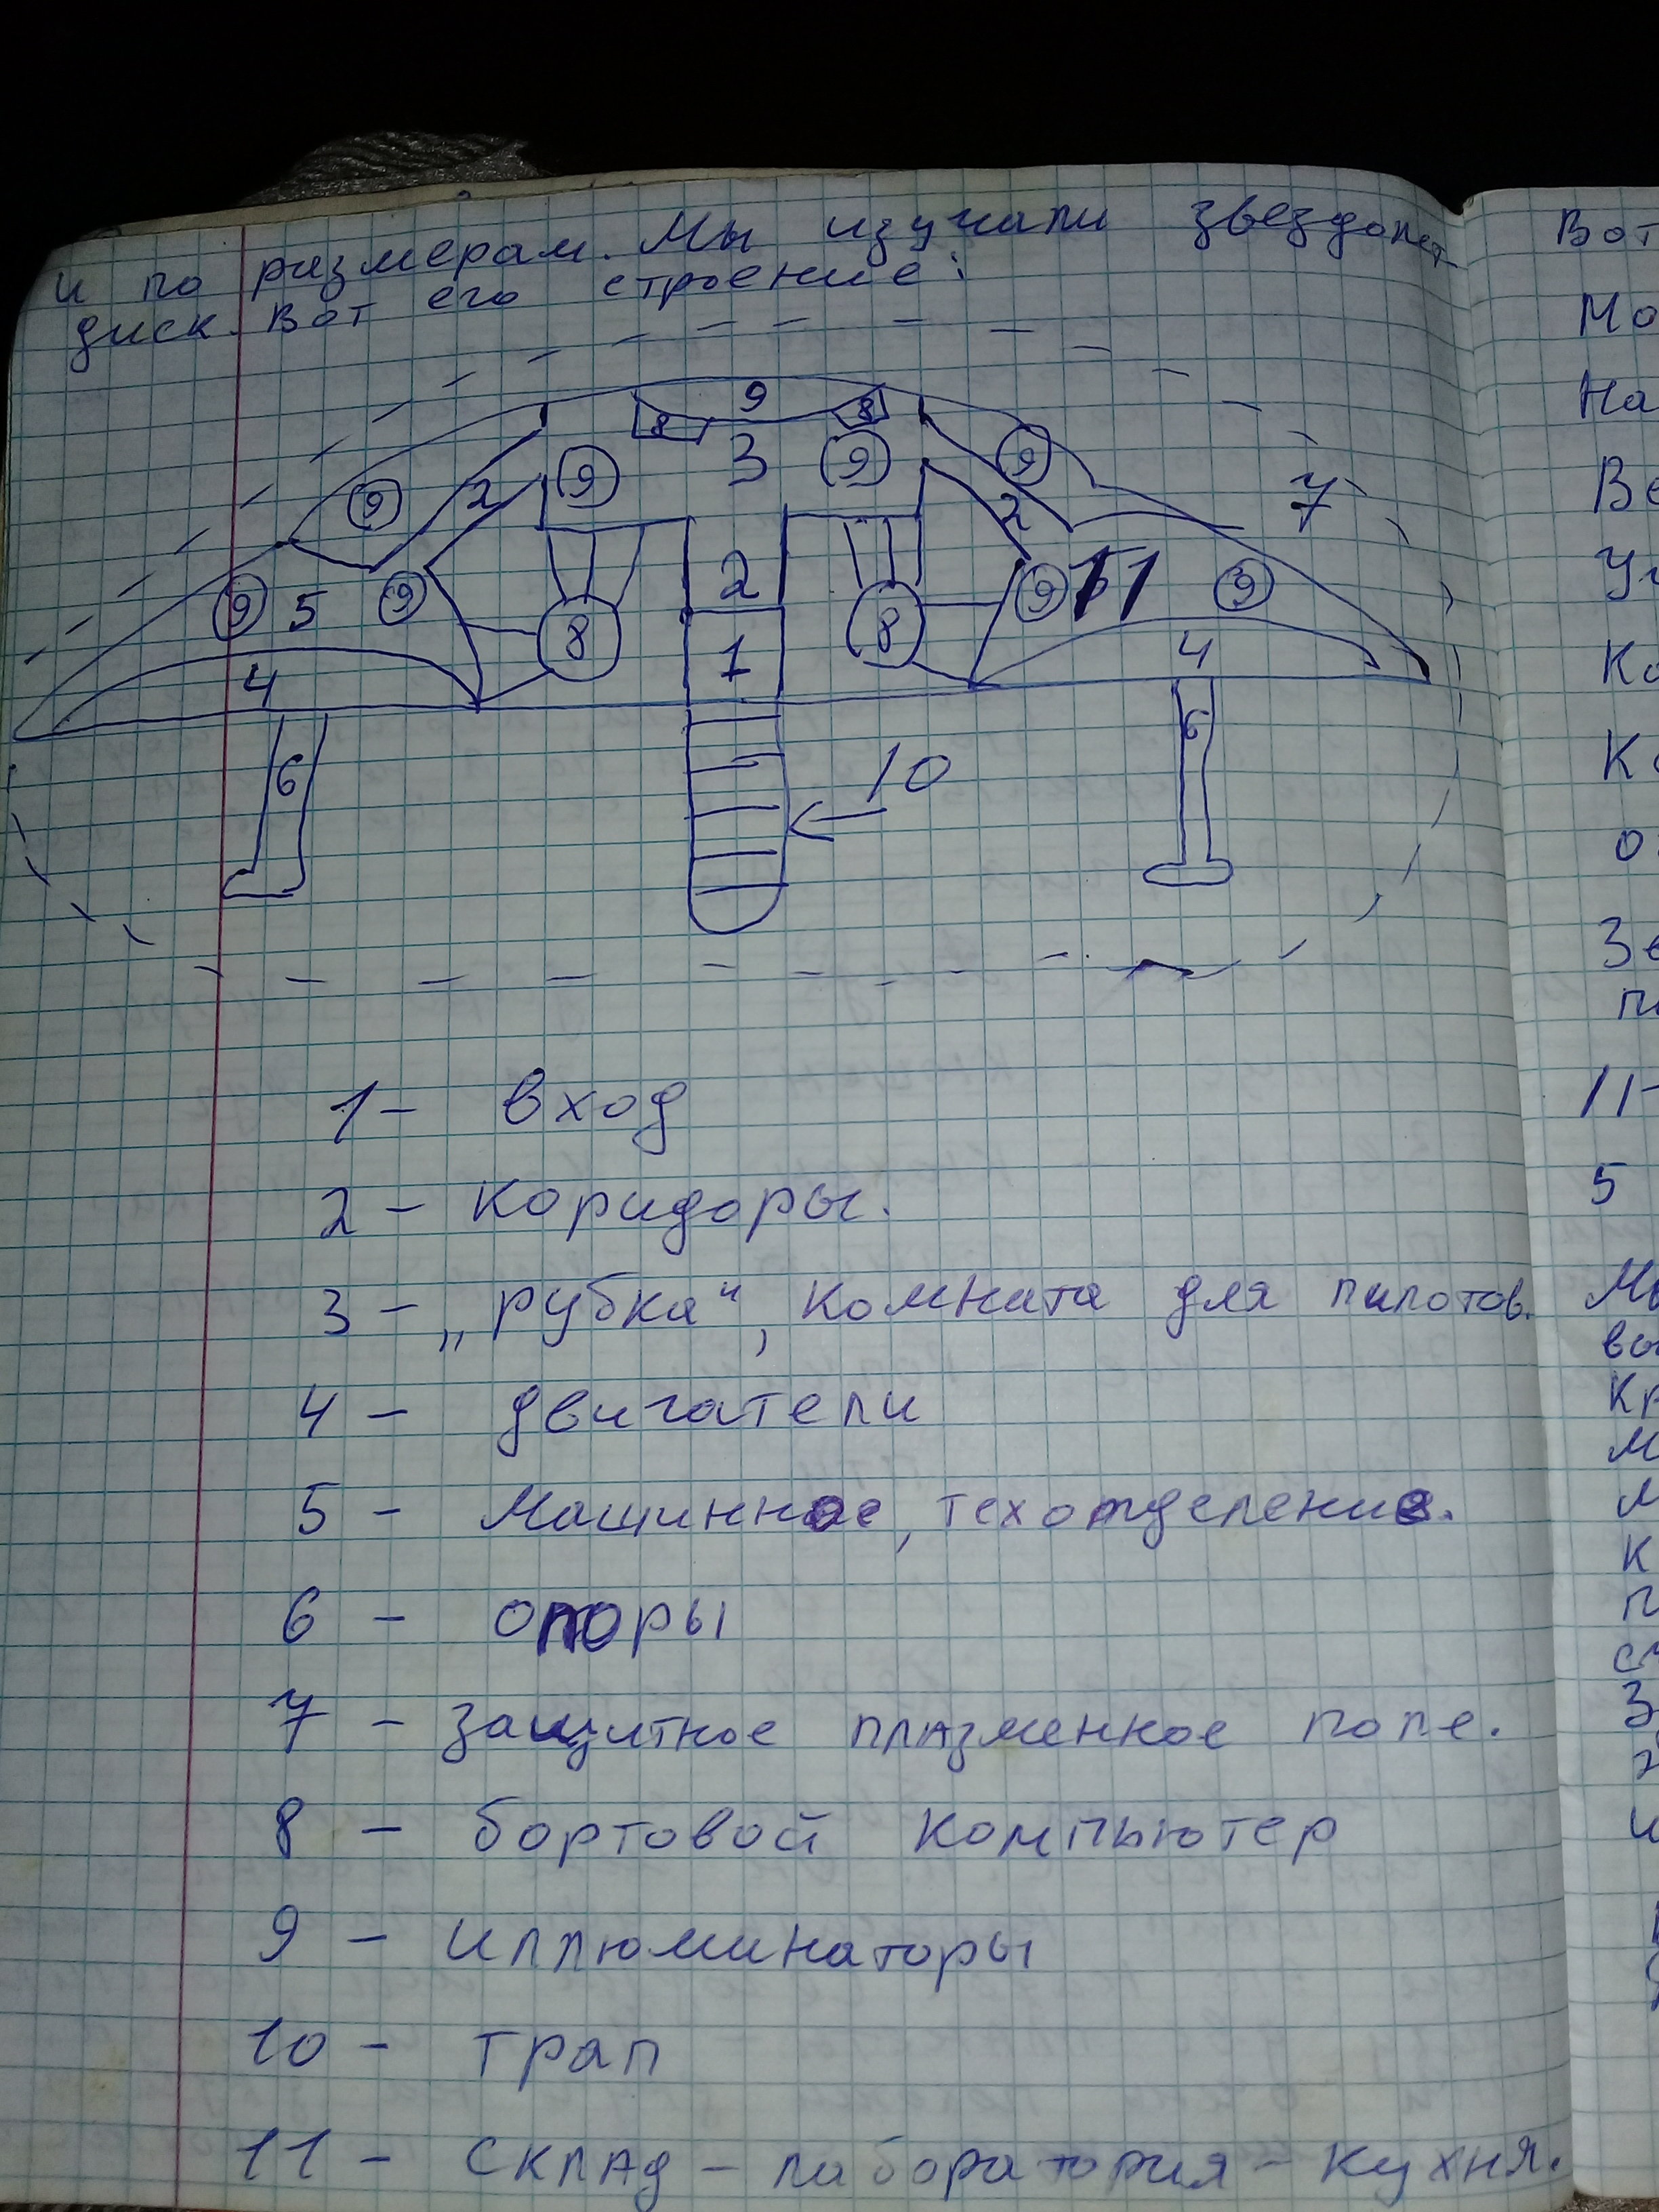 и по размерам. Мы изучали звездолет
диск. Вот его строение:
9
8 8
3
9 9 9 9
2 2
7
9 5 9
2
8 8
9 11 9
1
4 4
6 6
10
1 - вход
2 - коридоры.
3 - „рубка“, комната для пилотов.
4 - двигатели
5 - Машинное, техотделение.
6 - опоры
7 - защитное плазменное поле.
8 - бортовой компьютер
9 - иллюминаторы
10 - трап
11 - склад - лаборатория - кухня.
Вот
Мо
На
Ве
Ко
11-
5